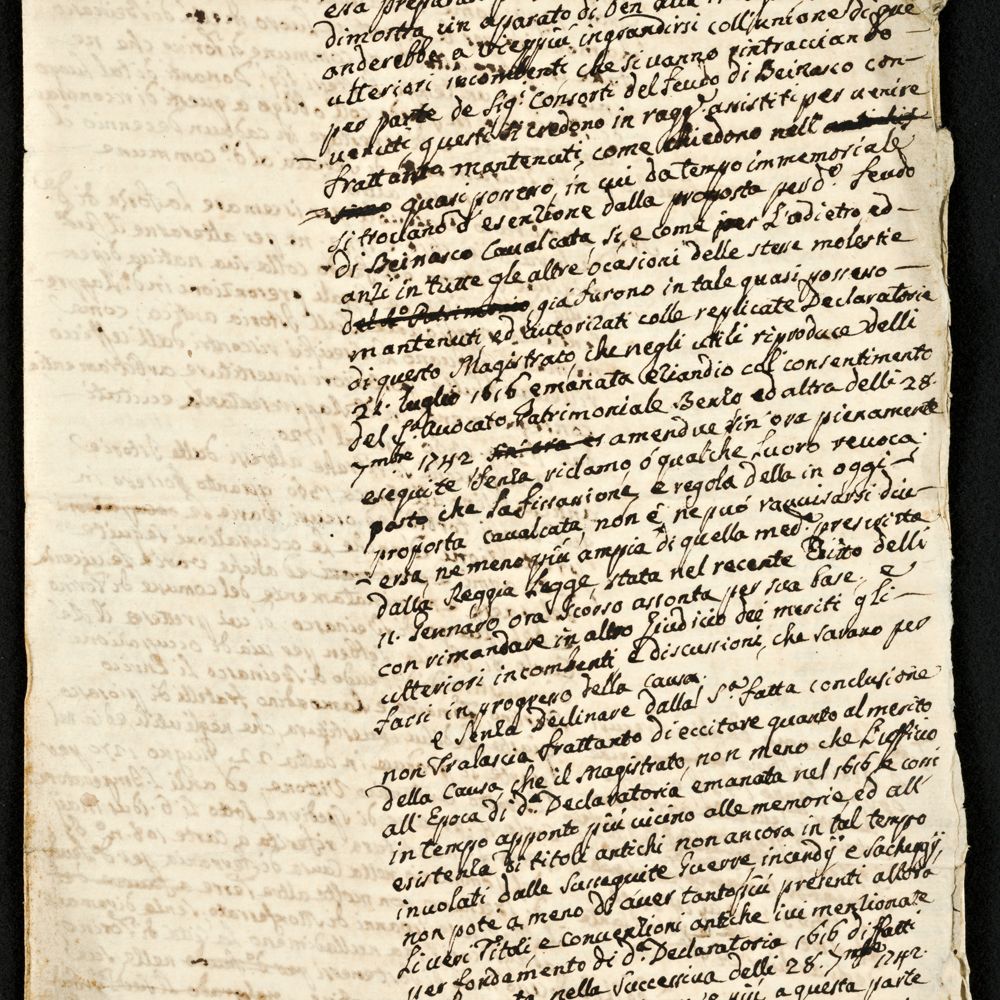 era prepara
dimostra un apparato di ben
anderebbe a vieppiù ingrandirsi coll'unione di que
ulteriori incombenti che si vanno rintracciando
per parte de Sig.i Consorti del feudo di Beinasco con-
-venuti questi si credono in ragg.e assistiti per venire
frattanto mantenuti, come chiedono nell'
quasi possesso, in cui da tempo immemoriale
si trovano d'esenzione dalla proposta per d.o feudo
di Beinasco Cavalcata, si, e come per L'adietro, ed-
anzi in tutte gle altre ocasioni delle stesse molestie
del d.o Patrimonio già furono in tale quasi possesso
mantenuti ed autorizati colle replicate Declaratorie
di questo Magistrato, che negli utili riproduce delli
21. luglio 1616 emanata eziandio col consentimento
del S.r Avocato Patrimoniale Benzo ed altra delli 28.
7mbre 1742 sin'ora es amendue sin'ora pienamente
eseguite senza riclamo, ó qualche Luoro revoca
posto che la fissazione, e regola della in oggi
proposta cavalcata, non è, ne può ravvisarsi div-
-ersa, ne meno più ampia di quella med.a prescritta
dalla Reggia Legge, stata nel recente Editto delli
11. Gennaro ora scorso assonta per sua base, e
con rimandare in altro Giudicio dei meriti gli
ulteriori incombenti, e discussioni, che sarano per
farsi in progresso della causa.
e Senza declinare dalla S.a fatta conclusione
non tralascia frattanto di eccitare quanto al merito
della Causa, che il Magistrato, non meno che L'ufficio
all'Epoca di d.a Declaratoria emanata nel 1616 e cosi
in tempo apponto più vicino alle memorie, ed all'
esistenza di titoli antichi non ancora in tal tempo
involati dalle susseguite Guerre incendÿ e sacheggÿ,
non poté a meno di aver tanto più presenti allora
Li veri Titoli, e convenzioni antiche ivi menzionate
per fondamento di d.a Declaratoria 1616 di fatti
nella successiva delli 28. 7mbre 1742.
più a questa parte